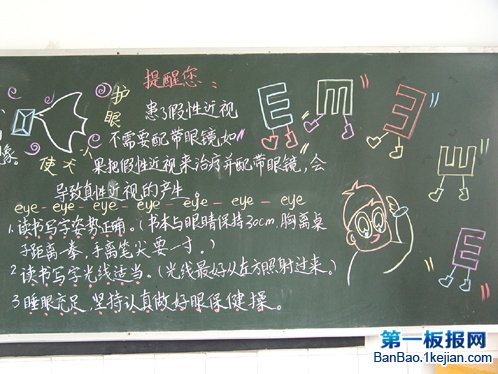 提醒您：
护
眼
患了假性近视
不需要配带眼镜,如
果把假性近视来治疗并配带眼镜,会
导致真性近视的产生。
eye - eye - eye - eye - eye - eye - eye
1.读书写字姿势正确。(书本与眼睛保持30cm,胸离桌
子距离一拳,手离笔尖要一寸。)
2.读书写字光线适当。(光线最好从左方照射过来。)
3.睡眠充足,坚持认真做好眼保健操。
使
像
E
E
E
E
E
第一板报网
BanBao.1kejian.com